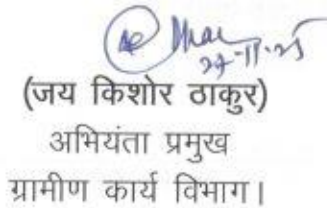 27-11-25
(जय किशोर ठाकुर)
अभियंता प्रमुख
ग्रामीण कार्य विभाग।